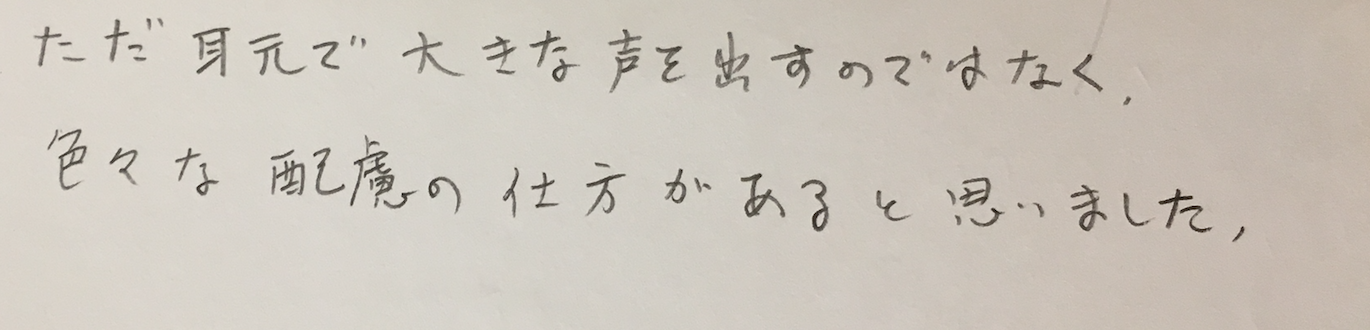 ただ耳元で大きな声を出すのではなく、
色々な配慮の仕方があると思いました、